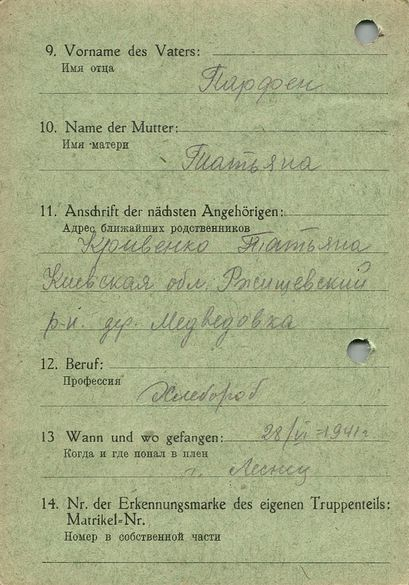 9. Vorname des Vaters:
Имя отца
Парфен
10. Name der Mutter:
Имя матери
Татьяна
11. Anschrift der nächsten Angehörigen:
Адрес ближайших родственников
Кривенко Татьяна
Киевская обл. Ржищевский
р-н. дер. Медведовка
12. Beruf:
Профессия
Хлебороб
13 Wann und wo gefangen: 28/VI =1941г
Когда и где попал в плен
г.
14. Nr. der Erkennungsmarke des eigenen Truppenteils:
Matrikel=Nr.
Номер в собственной части